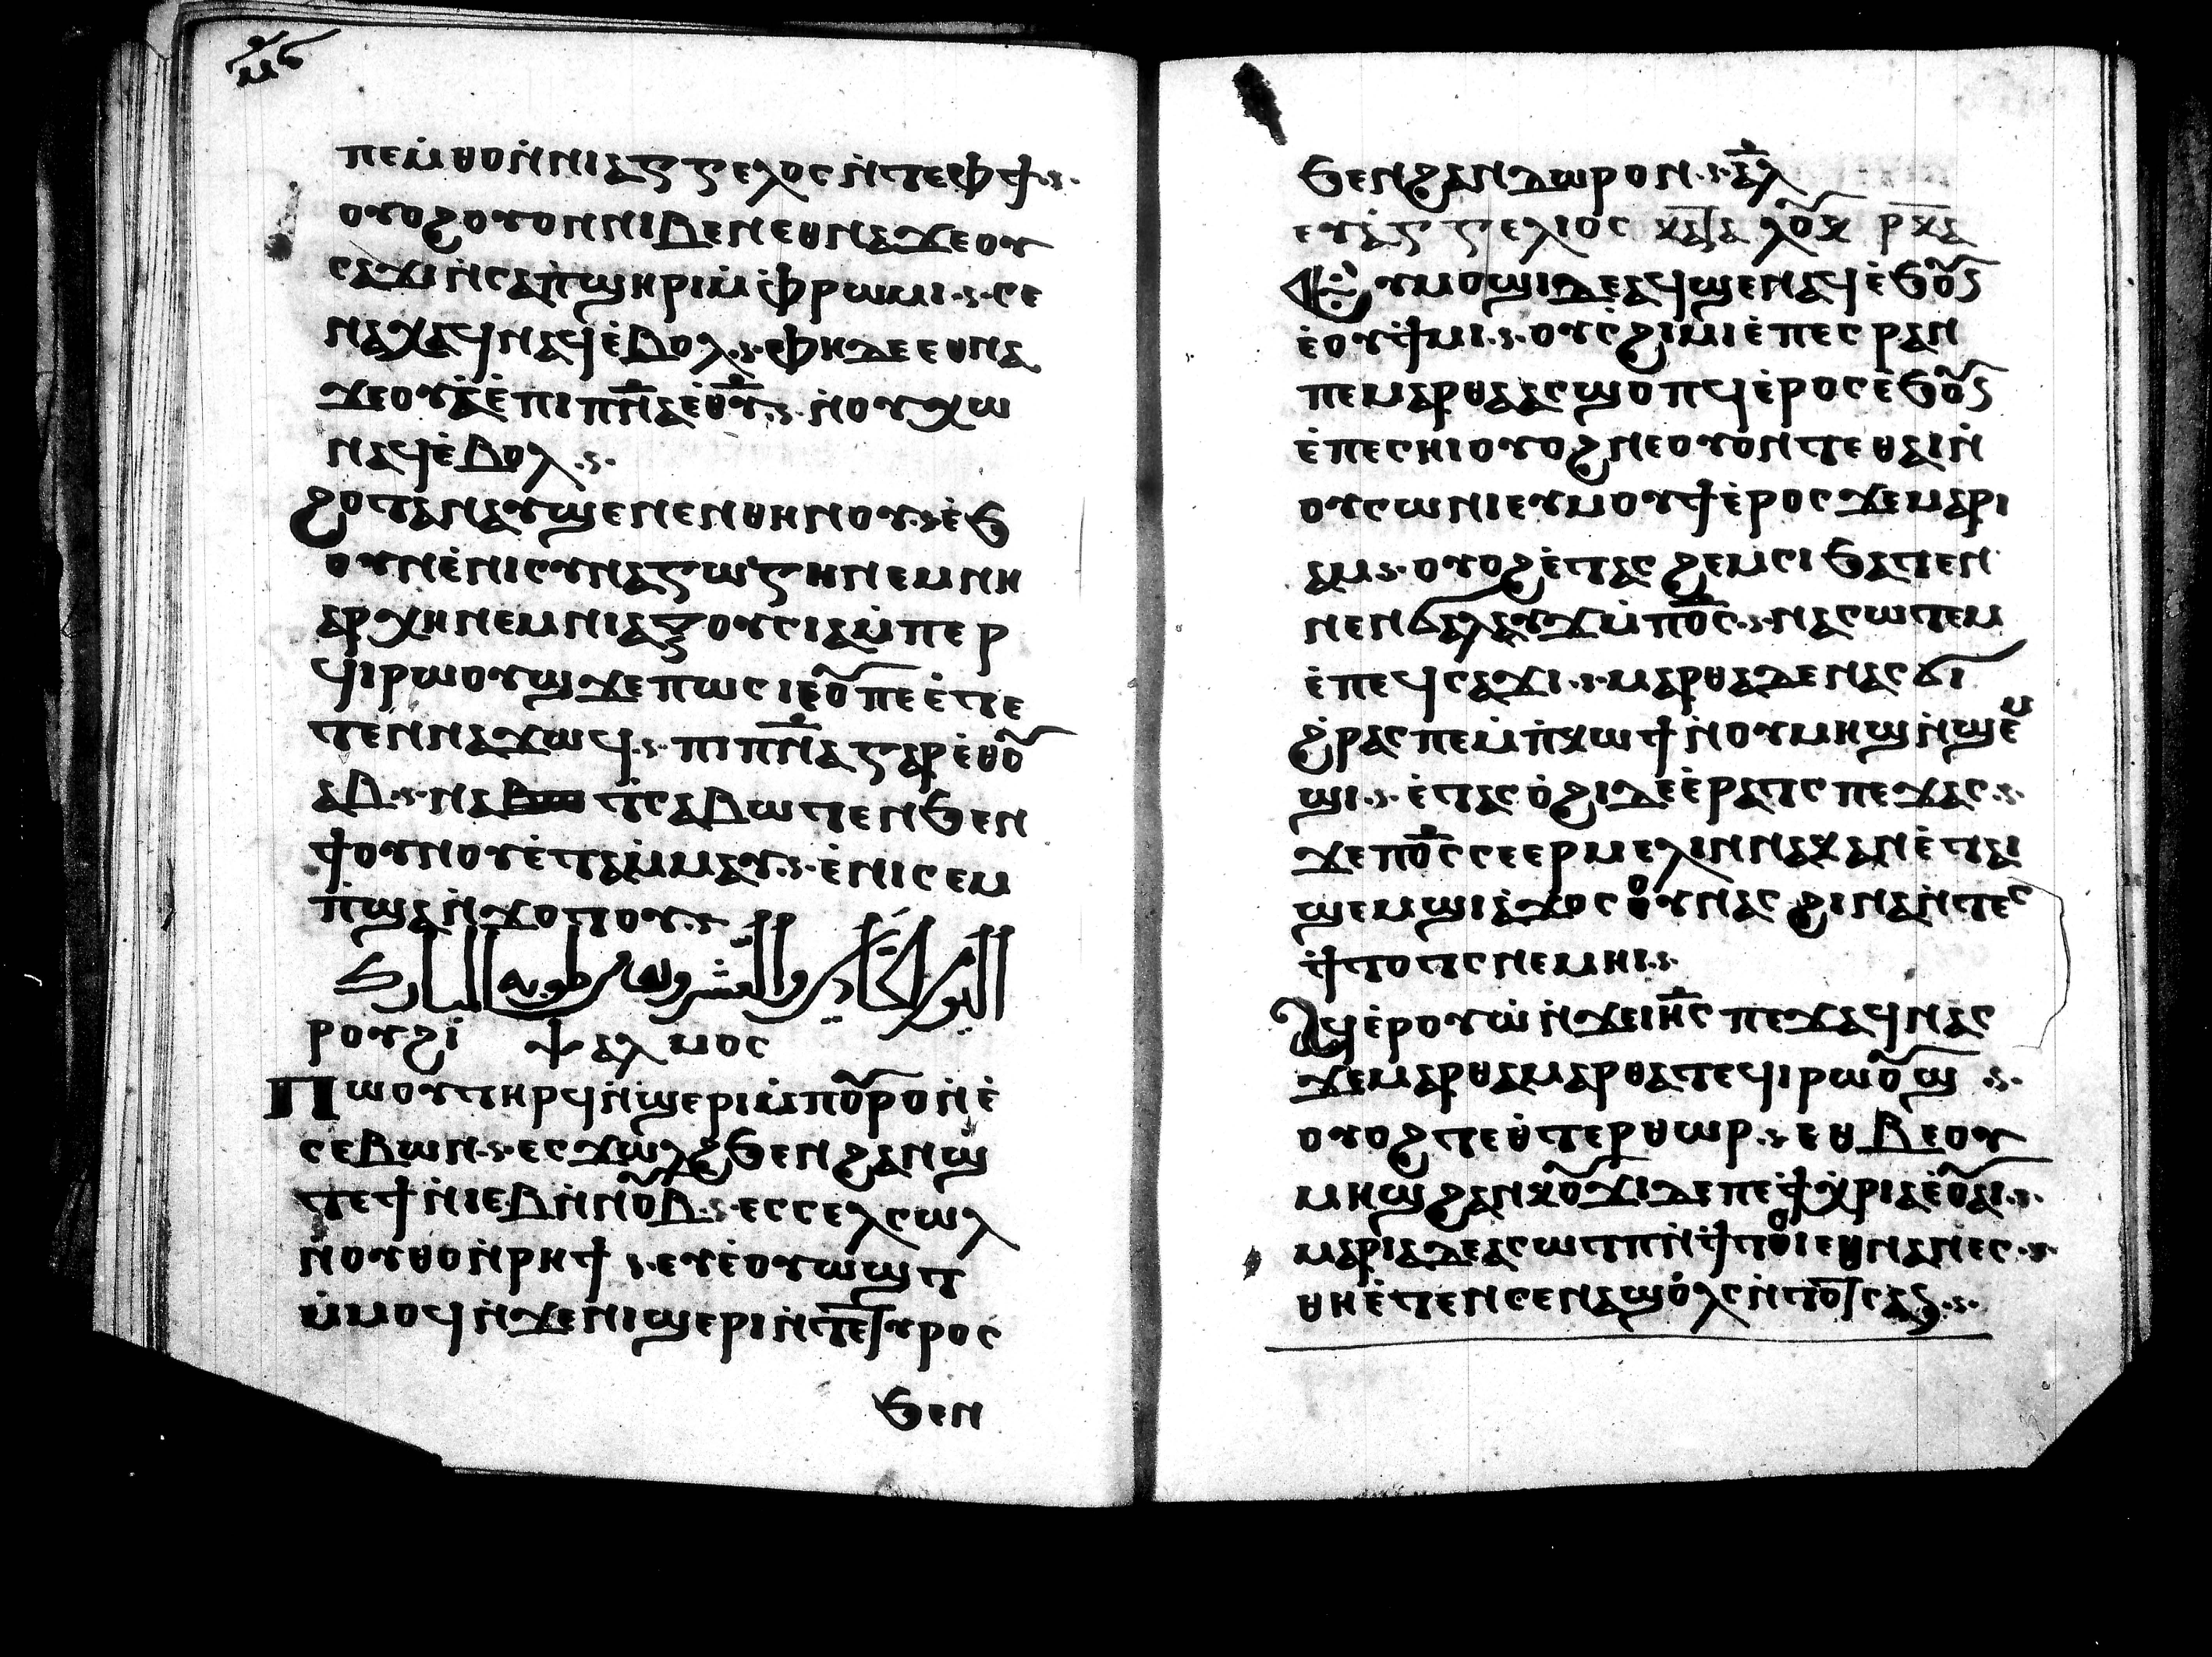 ⲡⲉⲙ̇ⲑⲟⲛ̇ⲛⲓⲁⲅⲅⲉⲗⲟⲥⲛ̇ⲧⲉⲫϯ
ⲟⲩⲟϩⲟⲩⲟⲛⲛⲓⲃⲉⲛⲉⲑⲛⲁϫⲉⲟⲩ
ⲥⲁϫⲓⲛ̇ⲥⲁⲡ̇ϣⲏⲣⲓⲙ̇ⲫ̇ⲣⲱⲙⲓ ⲥⲉ
ⲛⲁⲭⲁϥⲛⲁϥⲉ̇ⲃⲟⲗ ⲫⲏⲇⲉⲉⲑⲛⲁ
ϫⲉⲟⲩⲁ̇ⲉ̇ⲡⲓⲡⲛ̅ⲁⲉ̇ⲑ̅ⲩ̅ ⲛ̇ⲟⲩⲭⲱ
ⲛⲁϥⲉ̇ⲃⲟⲗ
ϩⲟⲧⲁⲛⲁⲩϣⲉⲛⲉⲛⲑⲏⲛⲟⲩ ⲉ̇ϧ
ⲟⲩⲛⲉ̇ⲛⲓⲥⲩⲛⲁⲅⲱⲅⲏⲛⲉⲙⲛⲏ
ⲁⲣⲭⲏⲛⲉⲙⲛⲓⲁⲝⲟⲩⲥⲓⲁⲙ̇ⲡⲉⲣ
ϥⲓⲣⲱⲟⲩϣϫⲉⲡⲱⲥⲓⲉⲟ̅ⲡⲉⲉ̇ⲧⲉ
ⲧⲉⲛⲛⲁϫⲱϥ ⲡⲓⲡⲛ̅ⲁⲅⲁⲣⲉ̇ⲑⲟ̅
ⲁⲃ ⲛⲁ ⲧⲥⲁⲃⲱⲧⲉⲛϧⲉⲛ
ϯⲟⲩⲛⲟⲩⲉ̇ⲧⲁⲙ̇ⲙⲁⲩ ⲉ̇ⲛⲓⲥⲉⲙ
ⲡ̇ϣⲁⲛ̇ϫⲟⲧⲟⲩ
ⲣⲟⲩϩⲓ ⲯⲁⲗⲙⲟⲥ
ⲡⲱⲟⲩⲧⲏⲣϥⲛ̇ϣⲉⲣⲓⲙ̇ⲡⲟ̅ⲣⲟⲛ̇ⲉ̇
ⲥⲉⲃⲱⲛ ⲉⲥϫⲱⲗϩϧⲉⲛϩⲁⲛϣ̇
ⲧⲉϯⲛ̇ⲓⲉⲃⲛ̇ⲛⲟ̅ⲃ ⲉⲥⲥⲉⲗⲥⲱⲗ
ⲛ̇ⲟⲩⲑⲟⲛ̇ⲣⲏϯ ⲉⲩⲉ̇ⲟⲩⲱϣⲧ
ⲙ̇ⲙⲟϥⲛ̇ϫⲉⲛⲓϣⲉⲣⲓⲛ̇ⲧⲉⲧⲩⲣⲟⲥ
ϧⲉⲛ
ϧⲉⲛϩⲁⲛⲇⲱⲣⲟⲛ ⲁ̅ⲗ
ⲉⲩⲁ̇ⲅⲅⲉⲗⲓⲟⲥ ⲕⲁⲧⲁ ⲗⲟ̅ⲕ ⲣ̅ⲕ̅ⲁ̅
ⲉⲩⲙⲟϣⲓⲇⲉⲁϥϣⲉⲛⲁϥⲉ̇ϧⲟ̅ⲛ
ⲉ̇ⲟⲩϯⲙⲓ ⲟⲩⲥ̇ϩⲓⲙⲓⲉ̇ⲡⲉⲥⲣⲁⲛ
ⲡⲉⲙⲁⲣⲑⲁⲁⲥϣⲟⲡϥⲉ̇ⲣⲟⲥⲉ̇ϧⲟ̅ⲛ
ⲉ̇ⲡⲉⲥⲏⲓⲟⲩⲟϩⲛⲉⲟⲩⲟⲛⲧⲉⲑⲁⲓⲛ̇
ⲟⲩⲥⲱⲛⲓⲉⲩⲙⲟⲩϯⲉ̇ⲣⲟⲥϫⲉⲙⲁⲣⲓ
ⲁⲙ ⲟⲩⲟϩⲉ̇ⲧⲁⲥϩⲉⲙⲥⲓϧⲁⲧⲉⲛ
ⲛⲉⲛϭⲁⲗⲁⲩϫⲙ̇ⲡⲟ̅ⲥ ⲛⲁⲥⲱⲧⲉⲙ
ⲉ̇ⲡⲉϥⲥⲁϫⲓ ⲙⲁⲣⲑⲁⲇⲉⲛⲁⲥϭⲓ
ϩ̇ⲣⲁⲥⲡⲉⲙ̇ⲡ̇ⲕⲱϯⲛ̇ⲟⲩⲙⲏϣⲛ̇ϣⲉⲙ
ϣⲓ ⲉ̇ⲧⲁⲥⲟ̇ϩⲓⲇⲉⲉ̇ⲣⲁⲧⲥⲡⲉϫⲁⲥ
ϫⲉⲡⲟ̅ⲥⲥⲉⲉⲣⲙⲉⲗⲓⲛⲛⲁⲕⲁⲛⲉ̇ⲧⲁⲓ
ϣⲉⲙϣⲓⲁ̇ϫⲟⲥⲟⲩⲛⲁⲥϩⲓⲛⲁⲛ̇ⲧⲉⲥ
ϯⲧⲟⲧⲥⲛⲉⲙⲏⲓ
ⲁϥⲉ̇ⲣⲟⲩⲱ̇ⲛ̇ϫⲉⲓⲏ̅ⲥⲡⲉϫⲁϥⲛⲁⲥ
ϫⲉⲙⲁⲣⲑⲁⲙⲁⲣⲑⲁⲧⲉϥⲓⲣⲱⲟ̅ϣ
ⲟⲩⲟϩⲧⲉϣ̇ⲧⲉⲣⲑⲱⲣ ⲉⲑⲃⲉⲟⲩ
ⲙⲏϣϩⲁⲛⲕⲟ̅ϫⲓⲇⲉⲡⲉϯⲭ̇ⲣⲓⲁⲉⲟ̅ⲁⲓ
ⲙⲁⲣⲓⲁⲇⲉⲁⲥⲱⲧⲡⲛ̇ϯⲧⲟⲓⲉⲑⲛⲁⲛⲉⲥ
ⲑⲏⲉ̇ⲧⲉⲛⲥⲉⲛⲁϣⲟ̇ⲗⲥⲛ̇ⲧⲟⲧⲥⲁⲛ